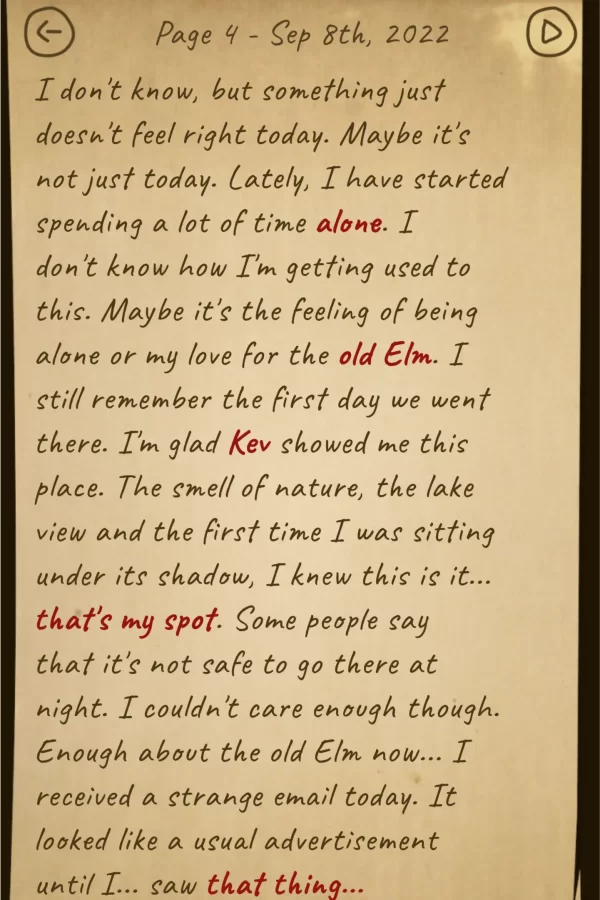 Page 4 - Sep 8th, 2022
I don't know, but something just
doesn't feel right today. Maybe it's
not just today. Lately, I have started
spending a lot of time alone. I
don't know how I'm getting used to
this. Maybe it's the feeling of being
alone or my love for the old Elm. I
still remember the first day we went
there. I'm glad Kev showed me this
place. The smell of nature, the lake
view and the first time I was sitting
under its shadow, I knew this is it...
that's my spot. Some people say
that it's not safe to go there at
night. I couldn't care enough though.
Enough about the old Elm now... I
received a strange email today. It
looked like a usual advertisement
until I... saw that thing...